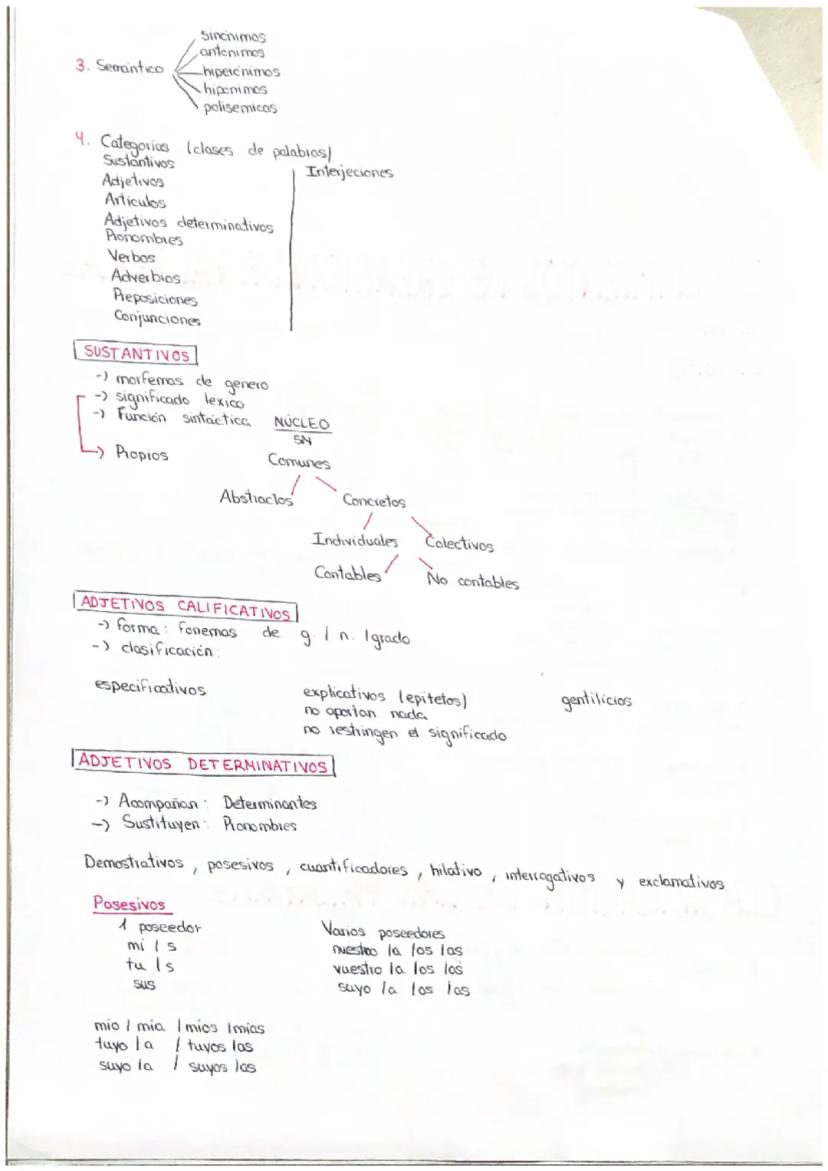 sinónimos
antónimos
3. Semántico
hiperónimos
hipónimos
polisémicos
4. Categorías (clases de palabras)
Sustantivos
Interjeciones
Adjetivos
Artículos
Adjetivos determinativos
Pronombres
Verbos
Adverbios
Preposiciones
Conjunciones
SUSTANTIVOS
-) morfemas de genero
-) significado léxico
-) Función sintáctica NÚCLEO
SN
Propios Comunes
Abstractos Concretos
Individuales Colectivos
Contables No contables
ADJETIVOS CALIFICATIVOS
-) forma: fonemas de g. / n. / grado
-) clasificación:
especificativos explicativos (epítetos) gentilicios
no aportan nada
no restringen el significado
ADJETIVOS DETERMINATIVOS
-) Acompañan: Determinantes
-) Sustituyen: Pronombres
Demostrativos, posesivos, cuantificadores, hilativo, interrogativos y exclamativos
Posesivos
1 poseedor Varios poseedores
mi / s nuestro /a /os /as
tu / s vuestro /a /os /as
sus suyo /a /os /as
mio / mia / mios / mias
tuyo / a / tuyos /as
suyo /a / suyos /as